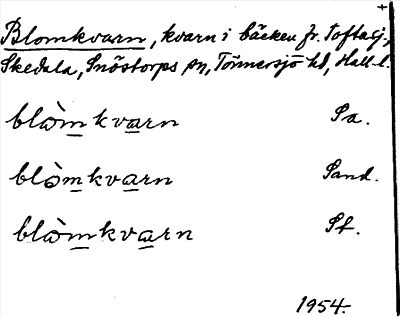 Blomkvarn, kvarn i bäcken fr. Toftasj,
Skedala, Snöstorps sn, Tönnersjö hd, Hall. l.
blòmkvarn Sa.
blòmkvarn Sand.
blòmkvarn St.
1954.